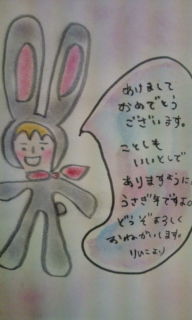 あけまして
おめでとう
ございます。
ことしも
いいとしで
ありますように。
うさぎ年ですよ。
どうぞよろしく
おねがいします。
りいこより